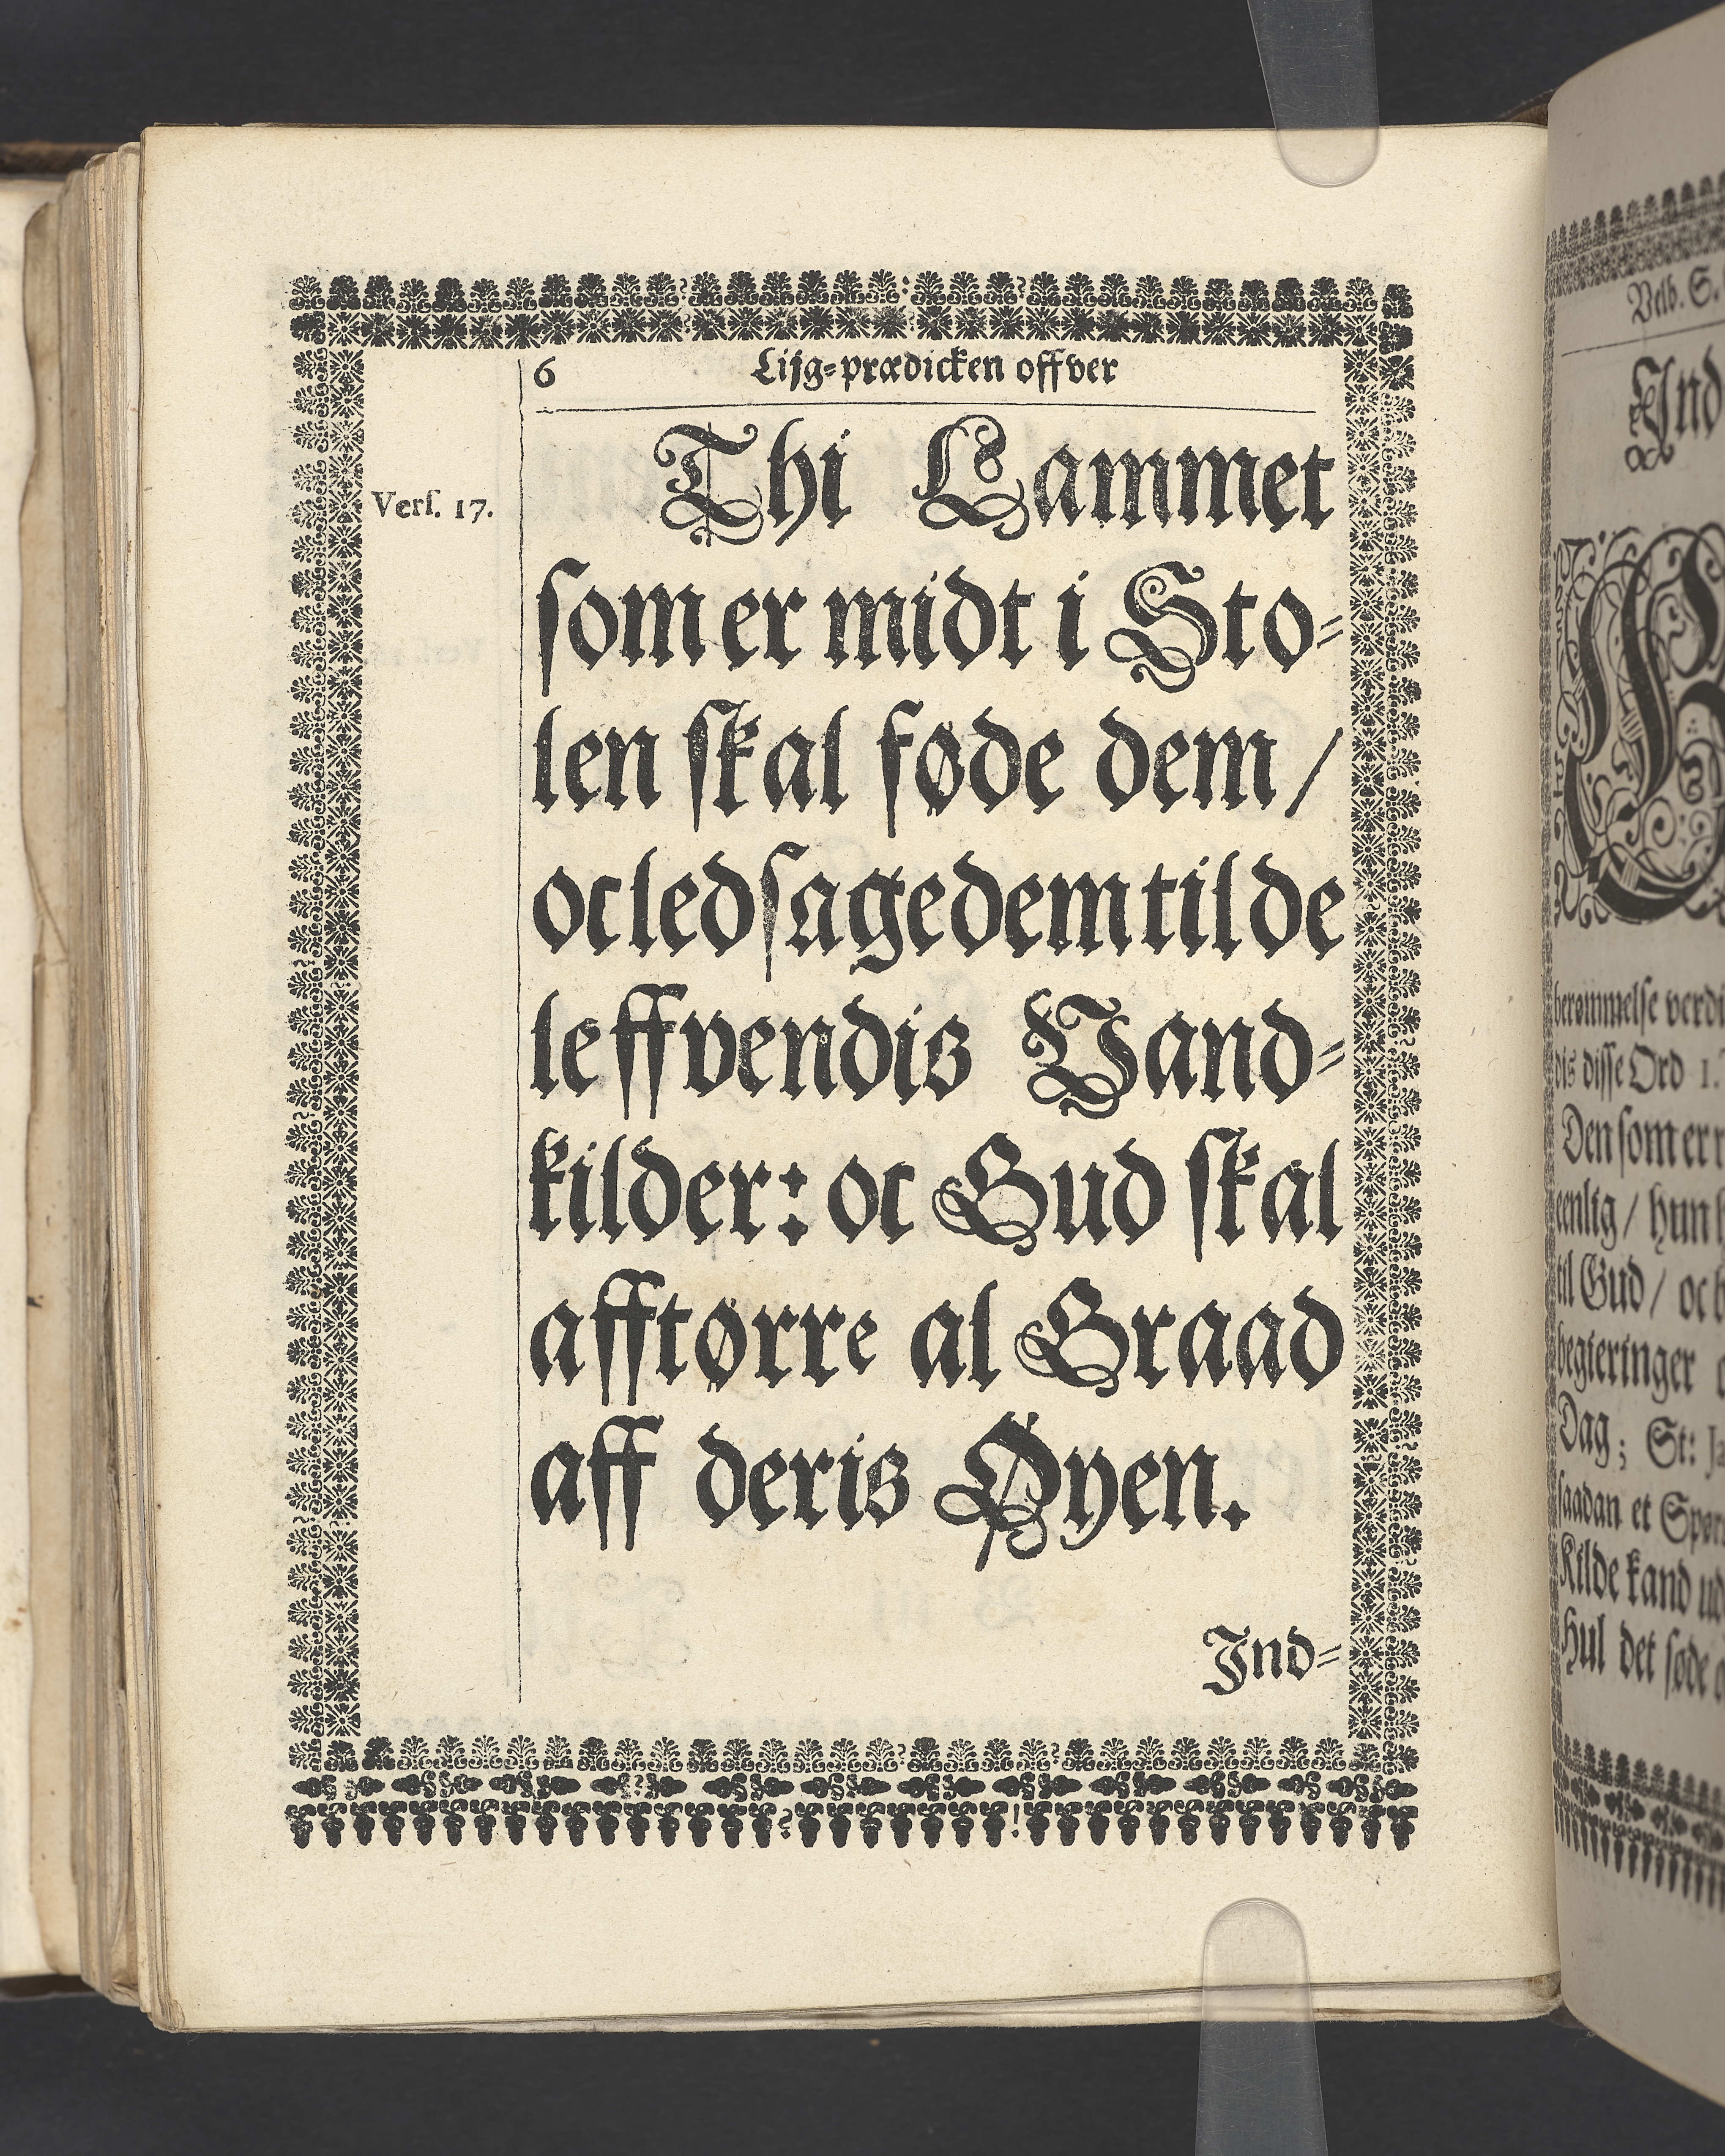 6 Lijg-prædicken offver
Vers. 17.
Thi Lammet
som er midt i Sto-
len skal føde dem /
oc ledsage dem til de
leffvendis Vand-
kilder: oc Gud skal
afftørre al Graad
aff deris Øyen.
Ind-
Velb. S.
Ind
berømmelse verdi
dis disse Ord 1.
Den som er
eenlig / hun
til Gud / oc
begieringer
Dag; St:
saadan et
Kilde kand
Hul det søde